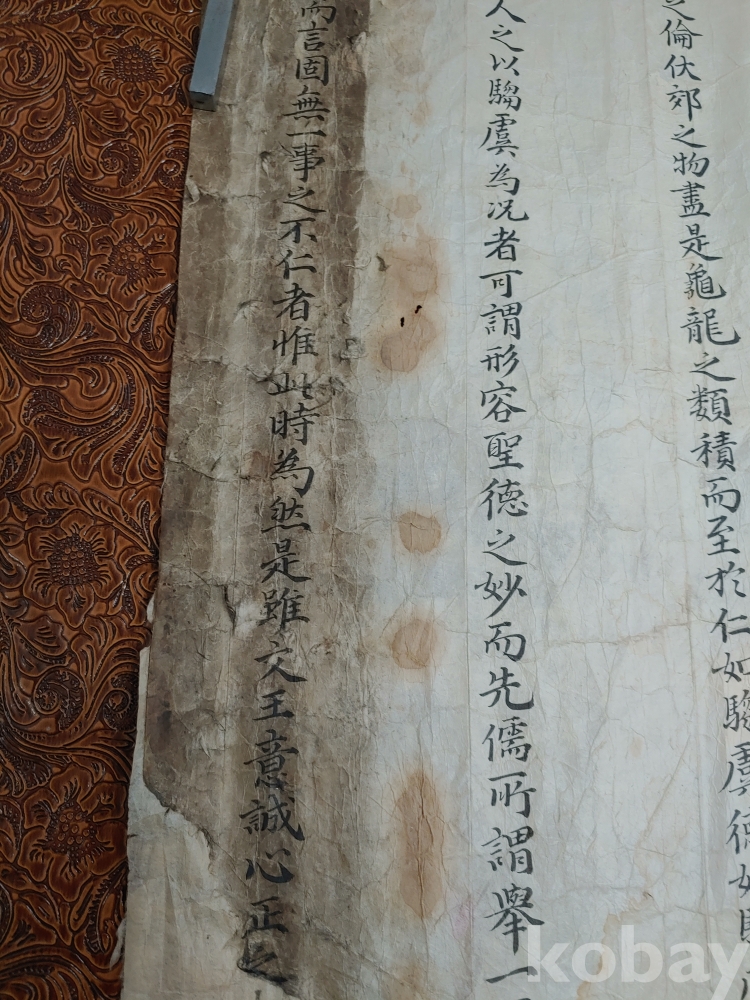 之倫伏郊之物盡是龜龍之類積而至於仁如騶虞德如
人之以騶虞為况者可謂形容聖德之妙而先儒所謂舉一
而言固無一事之不仁者惟此時為然是雖文王意誠心正之
kobay